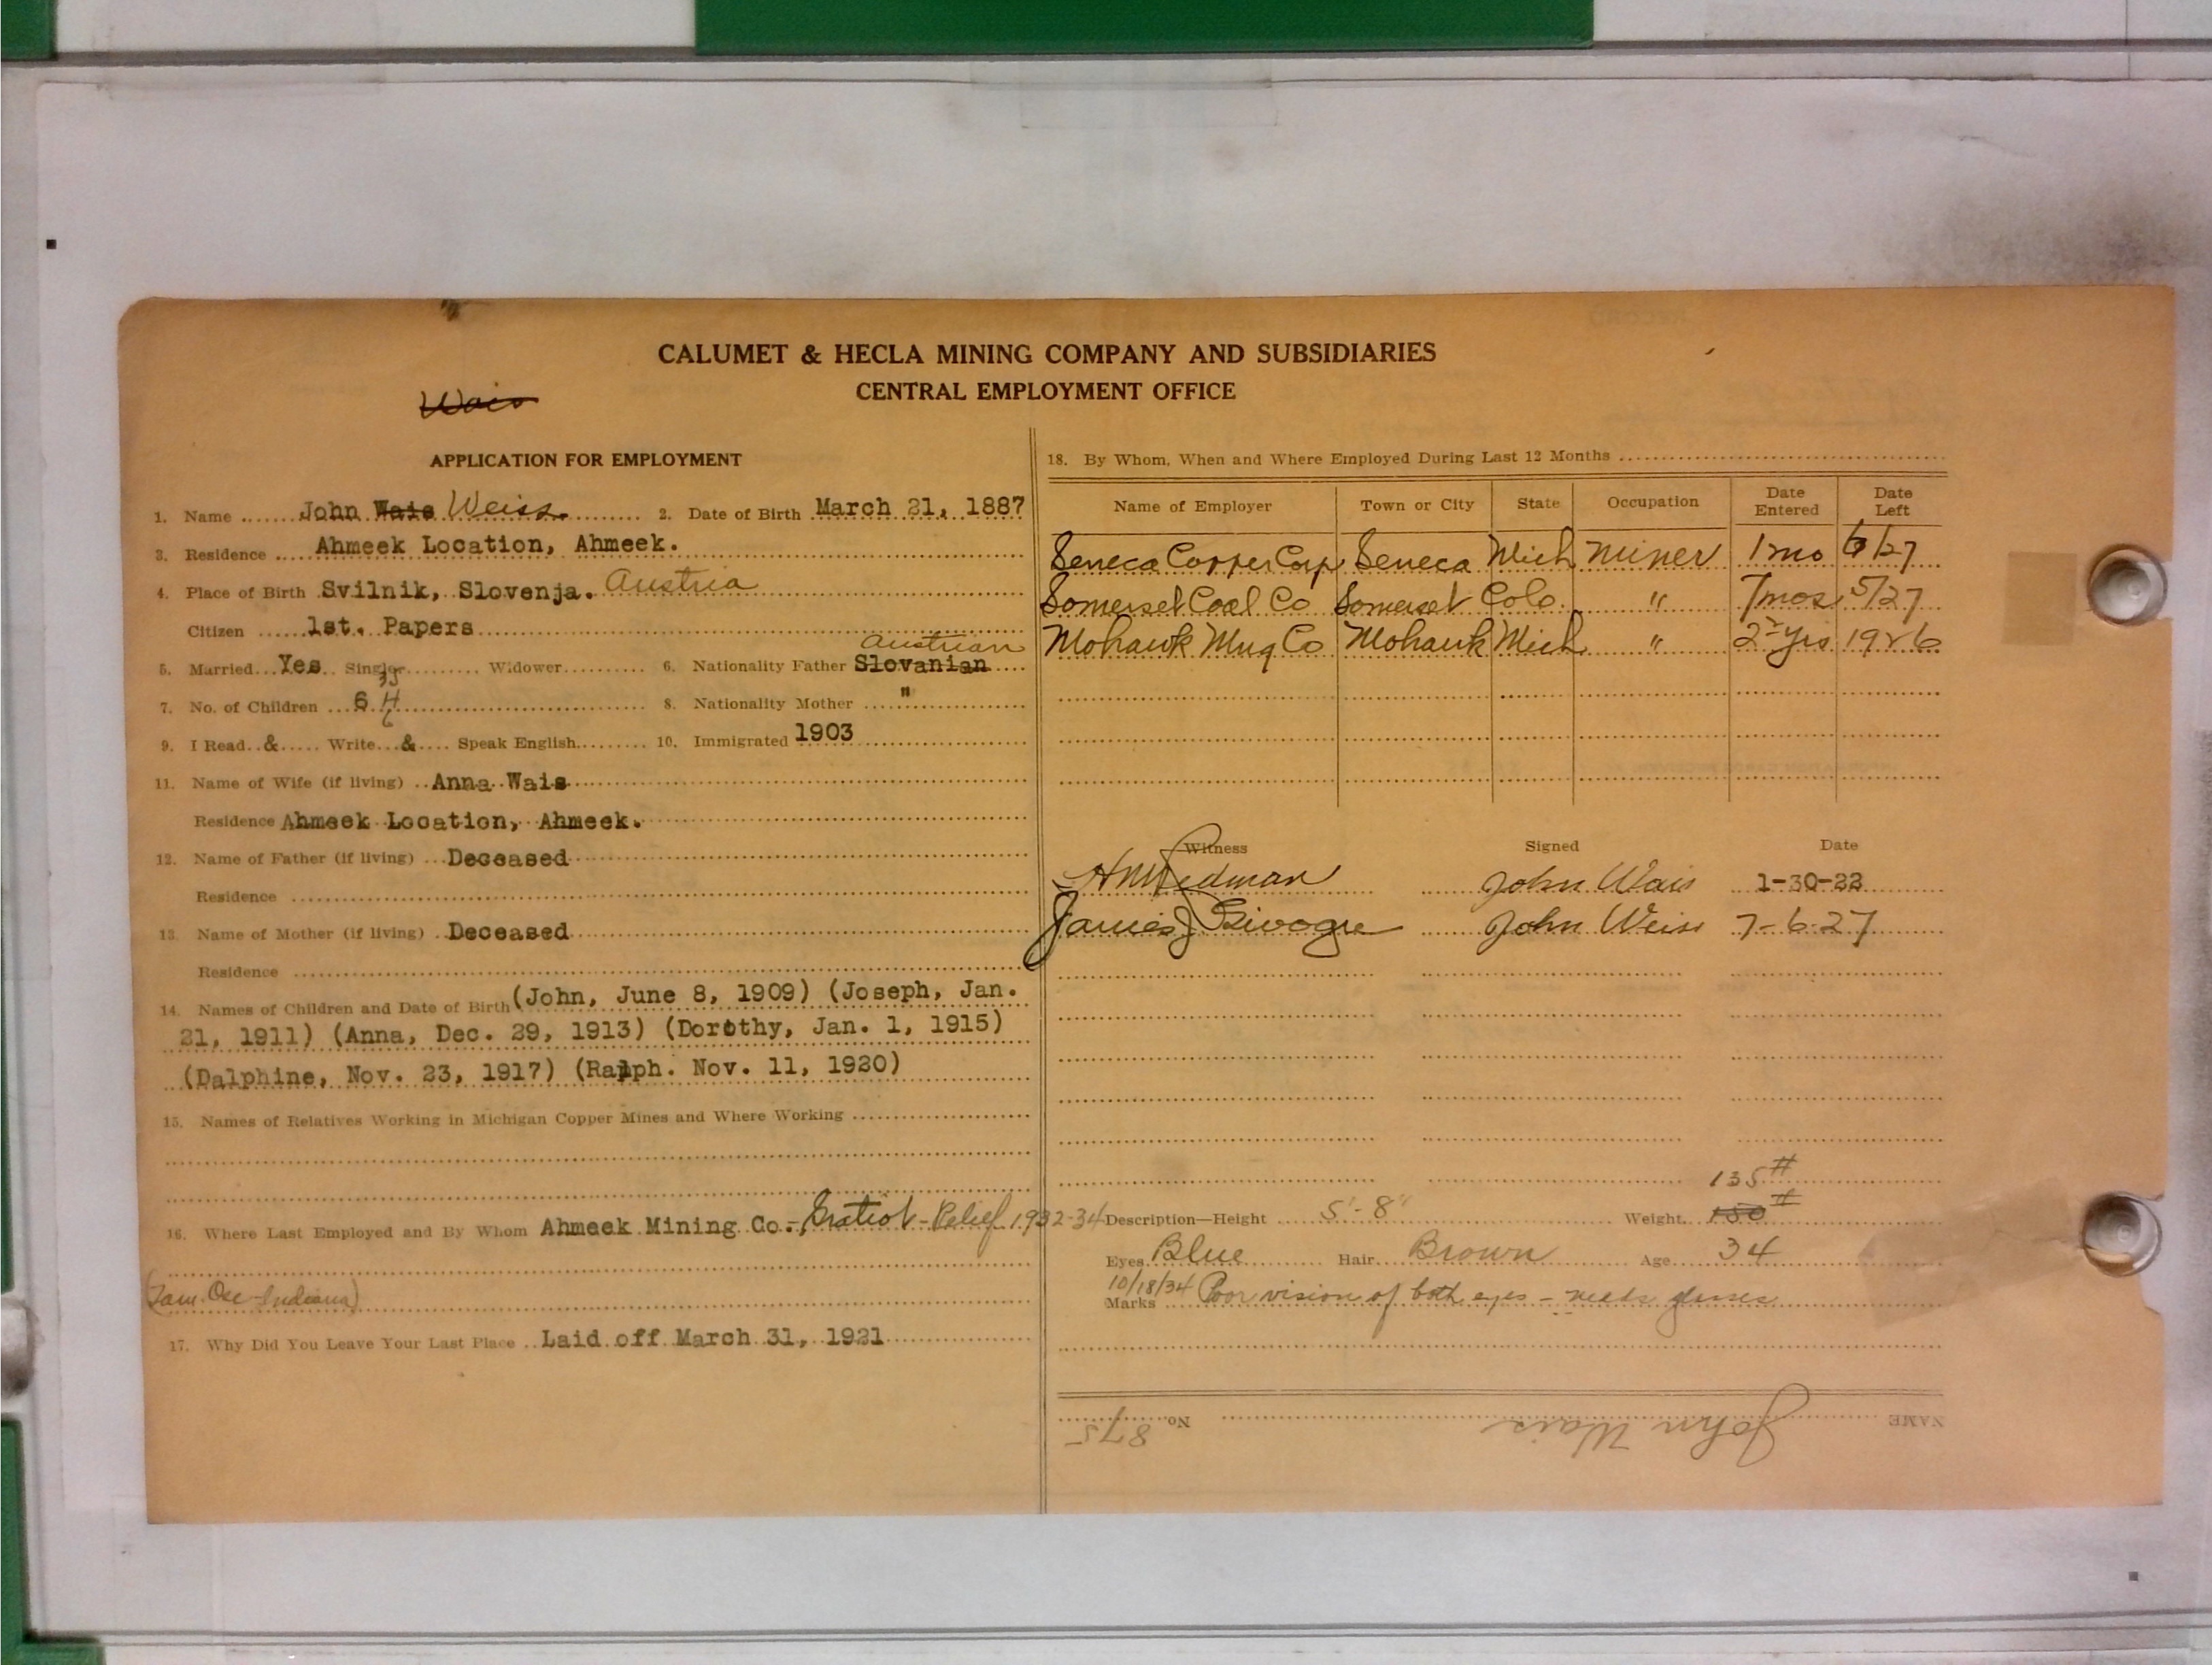 CALUMET & HECLA MINING COMPANY AND SUBSIDIARIES
CENTRAL EMPLOYMENT OFFICE
Wais
APPLICATION FOR EMPLOYMENT
1. Name John Wais Weiss 2. Date of Birth March 21, 1887
3. Residence Ahmeek Location, Ahmeek.
4. Place of Birth Svilnik, Slovenja. Austria
Citizen 1st. Papers
Austrian
5. Married Yes Single Widower 6. Nationality Father Slovanian
7. No. of Children 6 8. Nationality Mother "
9. I Read & Write & Speak English 10. Immigrated 1903
11. Name of Wife (if living) Anna Wais
Residence Ahmeek Location, Ahmeek.
12. Name of Father (if living) Deceased
Residence
13. Name of Mother (if living) Deceased
Residence
14. Names of Children and Date of Birth (John, June 8, 1909) (Joseph, Jan.
21, 1911) (Anna, Dec. 29, 1913) (Dorothy, Jan. 1, 1915)
(Dalphine, Nov. 23, 1917) (Ralph. Nov. 11, 1920)
15. Names of Relatives Working in Michigan Copper Mines and Where Working
16. Where Last Employed and By Whom Ahmeek Mining Co. - Gratiot - Relief 1932-34
Indiana)
17. Why Did You Leave Your Last Place Laid off March 31, 1921
18. By Whom, When and Where Employed During Last 12 Months
Name of Employer Town or City State Occupation Date Entered Date Left
Seneca Copper Corp Seneca Mich Miner 1 mo 6/27
Somerset Coal Co Somerset Colo " 7 mos 5/27
Mohawk Mng Co Mohawk Mich " 2 yrs 1926
Witness Signed Date
John Wais 1-30-22
James John Weiss 7-6-27
135#
Description—Height 5'-8" Weight 150#
Eyes Blue Hair Brown Age 34
10/18/34 Poor vision of both eyes - needs glasses
Marks
NAME John Wais No. 875